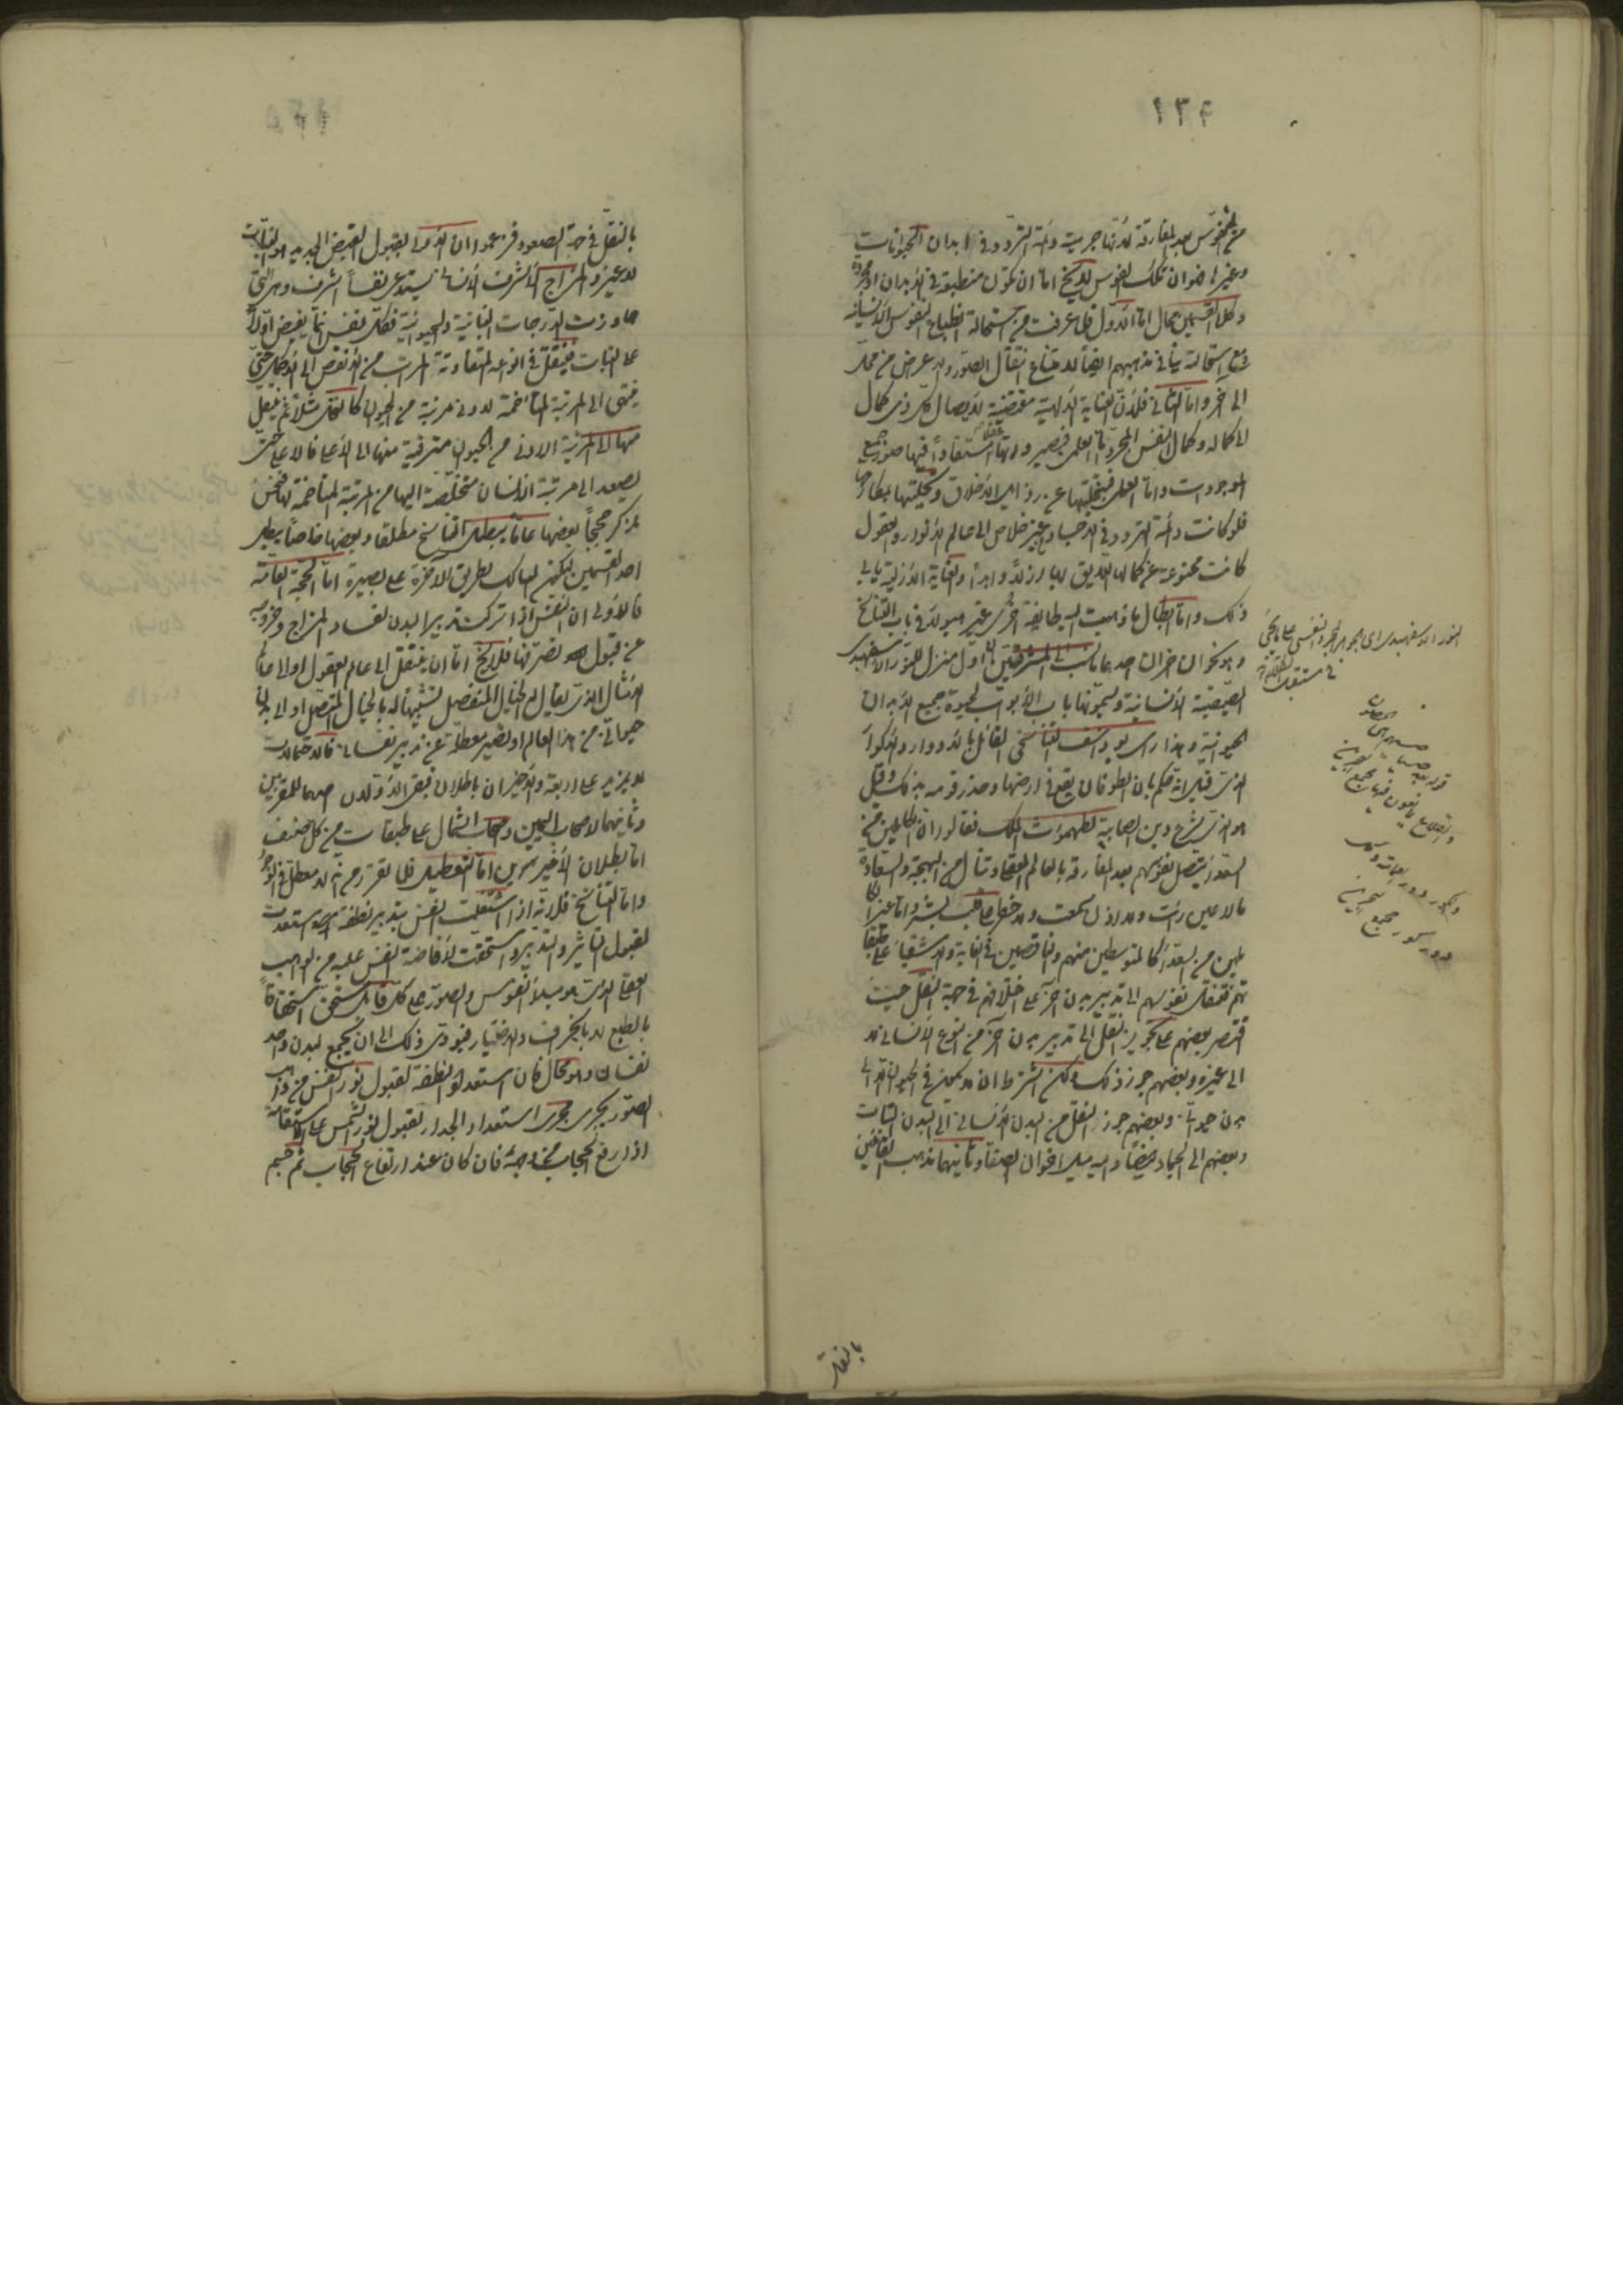 ١٣٤
من النفوس بعد المفارقة لانها جرمية دائمة التردد في ابدان الحيوانات
وغيرها فهو ان تلك النفوس لا يخ اما ان تكون منطبعة في الابدان او مجردة
وكلا القسمين محال اما الاول فلما عرفت من استحالة انطباع النفوس الانسانية
ومع استحالته ينافي مذهبهم ايضا لامتناع انتقال الصور والاعراض من محل
الى آخر واما الثاني فلان العناية الالهية مقتضية لايصال كل ذي كمال
الى كماله وكمال النفس المجردة اما العلمي فبصيرورتها عقلا مستفادا فيها صور جميع
الموجودات واما العملي فبتخليتها عن رذايل الاخلاق وتحليتها بمكارمها
فلو كانت دائمة التردد في الاجساد من غير خلاص الى عالم الانوار والعقول
كانت ممنوعة عن كمالها اللايق بها ازلا وابدا والعناية الازلية يابى
ذلك واما ابطال ما ذهبت اليه طايفة اخرى غير هولاء في باب التناسخ
وهو نحوان احدهما ما نسب الى المشرقيين ان اول منزل للنور الاسفهبدي
الصيصية الانسانية ويسمونها باب الابواب لحيوة جميع الابدان
الحيوانية وهذا راي يوذاسف التناسخي القائل بالادوار والاكوار
الذي قيل انه حكم بان الطوفان يقع في ارضها وحذر قومه بذلك وقيل
هو الذي شرع دين الصابية لطهمورث الملك فقالوا ان الكاملين من
السعداء يتصل نفوسهم بعد المفارقة بالعالم العقلي وتنال من البهجة والسعادة
ما لا عين رات ولا اذن سمعت ولا خطر على قلب بشر واما غير الكا
ملين من السعداء كالمتوسطين منهم والناقصين في الغاية والاشقياء على طبقا
تهم فتنتقل نفوسهم الى تدبير بدن آخر على اختلافهم في جهة النقل حيث
اقتصر بعضهم على تجويز النقل الى تدبير بدن آخر من النوع الانساني لا
الى غيره وبعضهم جوز ذلك ولكن اشترط ان لا يكون في الحيوان الا الى
بدن حيواني وبعضهم جوز النقل من البدن الانساني الى البدن النباتي
وبعضهم الى الجماد ايضا واليه ميل اخوان الصفا وثانيهما مذهب القائلين
النور الاسفهبدي اي الجوهر المجرد النفسي
بالنقل
بالنقل في جهة الصعود فزعموا ان الاولى بقبول الفيض الجديد هو النبات
لا غير والمزاج الاشرف الانساني يستدعي نفسا اشرف وهي التي
جاوزت الدرجات النباتية والحيوانية فكل نفس انما يفيض اولا
على النبات فينتقل في انواعه المتفاوتة المراتب من الانقص الى الاكمل حتى
ينتهي الى المرتبة المتاخمة لادنى مرتبة من الحيوان كالنخل مثلا ثم ينتقل
منها الى المرتبة الادنى من الحيوان مترقية منها الى الاعلى فالاعلى حتى
يصعد الى مرتبة الانسان متخلصة اليها من المرتبة المتاخمة لها فنحن
نذكر حججا بعضها عاما يبطل التناسخ مطلقا وبعضها خاصا يبطل
احد القسمين ليكون السالك لطريق الآخرة على بصيرة اما الحجة العامة
فالاولى ان النفس اذا تركت تدبير البدن لفساد المزاج وخروجه
عن قبول تصرفها فلا يخ اما ان ينتقل الى عالم العقول او الى عالم
المثال الذي يقال له الخيال المنفصل تشبيها له بالخيال المتصل او الى بدن
حيواني من هذا العالم او تصير معطلة عن تدبير نفساني فالاحتمالات
لا يزيد على اربعة والاخيران باطلان فبقي الاولان احدهما للمقربين
وثانيهما لاصحاب اليمين واصحاب الشمال على طبقات من كل صنف
اما بطلان الاخيرين اما التعطيل فلما تقرر من انه لا معطل في الوجود
واما التناسخ فلانه اذا اشتغلت النفس بتدبير نطفة استعدت
لقبول التاثير والتدبير واستحقت لافاضة النفس عليه من الواهب
العقلي الذي هو مبدأ النفوس والصور على كل قابل مستحق استحقاقا
بالطبع لا بالجزاف والاختيار فيودي ذلك الى ان يجمع لبدن واحد
نفسان وهو محال فان استعداد النطفة لقبول نور النفس من واهب
الصور يجري مجرى استعداد الجدار لقبول نور الشمس على الاستقامة
اذا رفع الحجاب من وجهه فان كان عند ارتفاع الحجاب ثم جسم